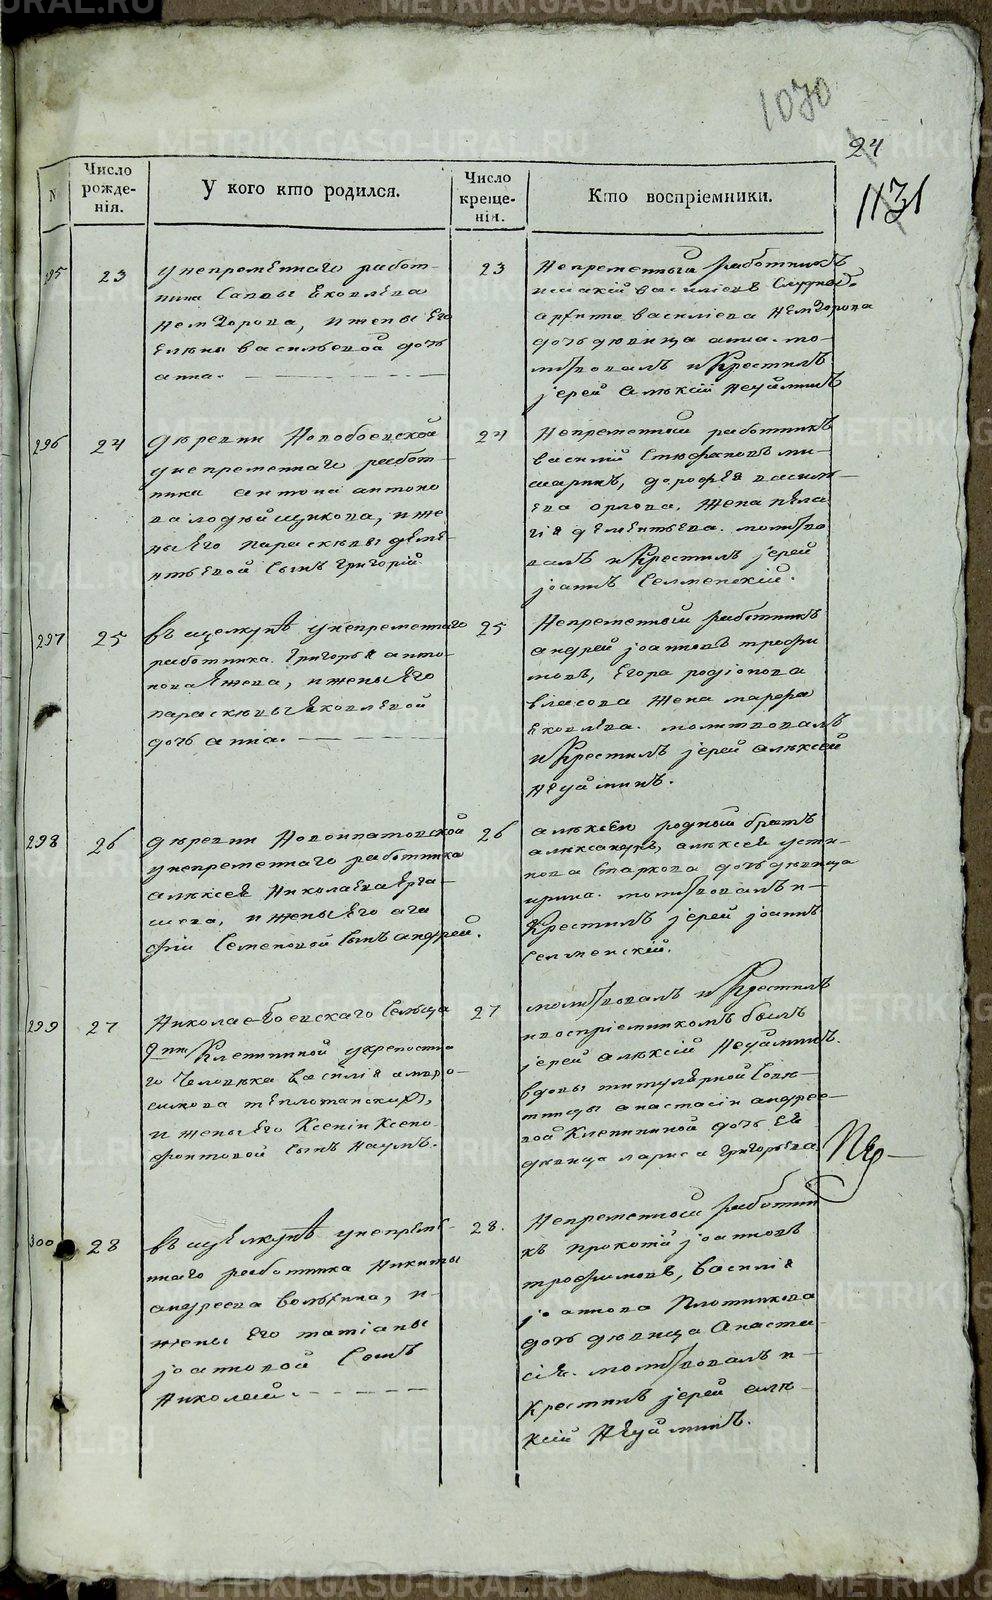 METRIKI.GASO-URAL.RU
1070
24
1131
N
Число рожденія.
У кого кто родился.
Число крещенія.
Кто воспріемники.
295
23
у непременнаго работ-
ника Саввы Яковлева
Немчорова, и жены Его
Елены васильевой дочь
анна.
23
Непременный работникъ
василіевъ
василіева Немчорова
дочь девица анна. мо-
литвовалъ и Крестилъ
іерей Алексій Неуйминъ
296
24
деревни Новобоевской
у непременнаго работ-
ника антона антоно
ва, и же
ны Его параскевы деме
нтьевой Сынъ григорій
24
Непременный работникъ
василій Стефановъ ми-
шаринъ, дорофея василь-
ева орлова, жена пела
гія дементьева. молитво
валъ и Крестилъ іерей
іоаннъ Селменскій.
297
25
въ щелкуне у непременнаго
работника Григорья анто-
нова Ежева, и жены Его
параскевы Яковлевой
дочь анна.
25
Непременный работникъ
андрей іоанновъ трофи
мовъ, Егора родіонова
власова жена марфа
Яковлева. молитвовалъ
и Крестилъ іерей алексей
Неуйминъ.
298
26
деревни Новоипатовской
у непременнаго работника
алексея Николаева Ярга-
шева, и жены Его ага
фіи Семеновой Сынъ андрей.
26
алексею родный братъ
александръ, алексея усти-
нова Старкова дочь девица
ирина. молитвовалъ и
Крестилъ іерей іоаннъ
Селменскій.
299
27
Николаебоевскаго Сельца
Г-жи Клепининой у крепостна
го Человека василія амвро-
симова,
и жены Его Ксеніи Ксено-
фонтовой Сынъ Наумъ.
27
молитвовалъ и Крестилъ
и воспріемникомъ былъ
іерей алексій Неуйминъ.
вдовы титулярной Совѣ-
тницы анастасіи андрее-
вой Клепининой дочь Ея
девица лариса Григорьева.
300
28
въ щелкуне у непреме-
ннаго работника Никиты
андреева волкина, и
жены Его татіаны
іоанновой Сынъ
Николай.
28.
Непременный работни
къ прокопій іоанновъ
трофимовъ, василія
іоаннова Плотникова
дочь девица Анаста-
сія. молитвовалъ и
Крестилъ іерей але-
ксій Неуйминъ.